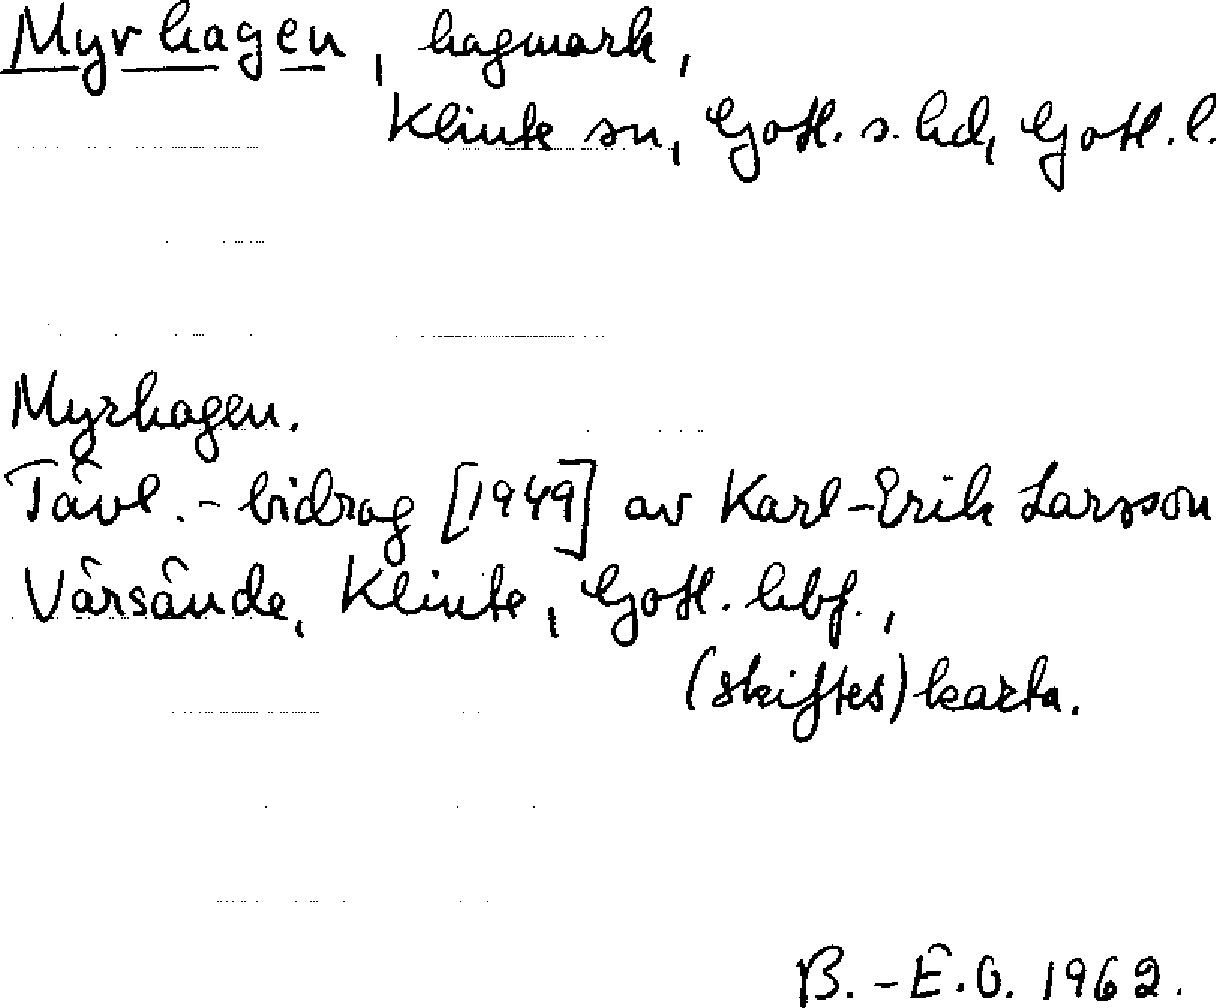 Myrhagen, hagmark,
Klinte sn, Gotl. s. hd, Gotl. l.
Myrhagen.
Tävl.-bidrag [1949] av Karl-Erik Larsson
Värsände, Klinte, Gotl. hbf.,
(skiftes)karta.
B.-E.O. 1962.